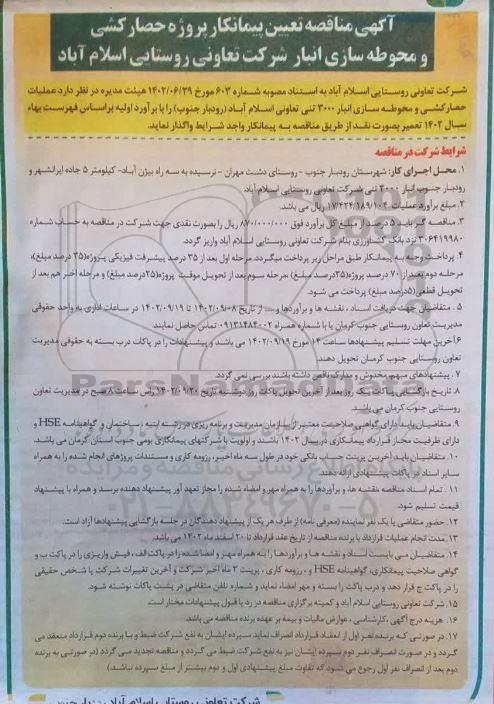 آگهی مناقصه تعیین پیمانکار پروژه حصارکشی
و محوطه سازی انبار شرکت تعاونی روستایی اسلام آباد
شرکت تعاونی روستایی اسلام آباد به استناد مصوبه شماره ۶۰۳ مورخ ۱۴۰۲/۰۶/۲۹ هیئت مدیره در نظر دارد عملیات
حصارکشی و محوطه سازی انبار ۳۰۰۰ تنی تعاونی اسلام آباد (رودبار جنوب) را با برآورد اولیه براساس فهرست بهاء
سال ۱۴۰۲ تعمیر بصورت نقد از طریق مناقصه به پیمانکار واجد شرایط واگذار نماید.
شرایط شرکت در مناقصه
۱. محل اجرای کار: شهرستان رودبار جنوب - روستای دشت مهران - نرسیده به سه راه بیژن آباد- کیلومتر ۵ جاده ایرانشهر و
رودبار جنوب انبار ۳۰۰۰ تنی شرکت تعاونی روستایی اسلام آباد
۲. مبلغ برآورد عملیات ۱۷/۴۲۴/۱۸۹/۱۰۴ ریال می باشد.
۳. مناقصه گر باید ۵ درصد از مبلغ کل برآورد فوق ۸۷۰/۰۰۰/۰۰۰ ریال را بصورت نقدی جهت شرکت در مناقصه به حساب شماره
۳۰۶۴۱۹۹۸۰ نزد بانک کشاورزی بنام شرکت تعاونی روستایی اسلام آباد واریز گردد.
۴. پرداخت وجه به پیمانکار طبق مراحل زیر پرداخت میگردد. مرحله اول بعد از ۳۵ درصد پیشرفت فیزیکی پروژه(۳۵ درصد مبلغ)،
مرحله دوم بعد از ۷۰ درصد پروژه(۳۵درصد مبلغ)، مرحله سوم بعد از تحویل موقت پروژه (۲۵درصد مبلغ) و مرحله آخر هم بعد از
تحویل قطعی (۵درصد مبلغ) پرداخت می شود.
۵. متقاضیان جهت دریافت اسناد، نقشه ها و برآوردها و ... از تاریخ ۱۴۰۲/۰۹/۰۸ تا ۱۴۰۲/۰۹/۱۹ در ساعات اداری به واحد حقوقی
مدیریت تعاون روستایی جنوب کرمان یا با شماره همراه ۰۹۱۳۱۴۸۴۰۰۲ تماس حاصل نمایند.
۶.آخرین مهلت تسلیم پیشنهادها ساعت ۱۴ مورخ ۱۴۰۲/۰۹/۱۹ می باشد و پیشنهادات را در پاکات درب بسته به حقوقی مدیریت
تعاون روستایی جنوب کرمان تحویل دهند.
۷. پیشنهادهای مبهم، مخدوش و مدارک ناقص داشته باشند بررسی نمی گردد.
۸. تاریخ بازگشایی پاکات یک روز بعد از آخرین تحویل پاکات روز دوشنبه تاریخ ۱۴۰۲/۰۹/۲۰ راس ساعت ۸ صبح در مدیریت تعاون
روستایی جنوب کرمان می باشد.
۹. متقاضیان باید دارای گواهی صلاحیت معتبر از سازمان مدیریت و برنامه ریزی در رشته ابنیه ، ساختمان و گواهینامه HSE و
دارای ظرفیت مجاز قرارداد پیمانکاری در سال ۱۴۰۲ باشند و اولویت با شرکتهای پیمانکاری بومی جنوب استان کرمان می باشد.
۱۰. متقاضیان باید آخرین پرینت حساب بانکی خود در طول سه ماه اخیر، رزومه کاری و مستندات پروژهای انجام شده را به همراه
سایر اسناد در پاکات پیشنهادی ارائه دهند.
۱۱. تمام اسناد مناقصه نقشه ها، و برآوردها را به همراه مهر و امضاء شده را مجاز تعهد آور پیشنهاد دهنده برسد و همراه با پیشنهاد
قیمت تسلیم شود.
۱۲. حضور متقاضی یا یک نفر نماینده (معرفی نامه) از طرف هر یک از پیشنهاد دهندگان در جلسه بازگشایی پیشنهادها آزاد است.
۱۳. مدت انجام عملیات قرارداد با برنده مناقصه از تاریخ عقد قرارداد تا ۲۰ اسفند ماه ۱۴۰۲ می باشد.
۱۴. متقاضیان می بایست اسناد و نقشه ها و برآوردها را به همراه مهر و امضا شده را در پاکت الف، فیش واریزی را در پاکت ب و
گواهی صلاحیت پیمانکاری، گواهینامه HSE و ، رزومه کاری ، پرینت ۳ ماه اخیر شرکت و آخرین تغییرات شرکت یا شخص حقیقی
را در پاکت ج قرار دهد و درب پاکت را بسته و مهر امضاء نماید و شماره تلفن متقاضی در پشت پاکات نوشته شود.
۱۵. شرکت تعاونی روستایی اسلام آباد و کمیته برگزاری مناقصه در رد یا قبول پیشنهادات مختار است.
۱۶. هزینه درج آگهی، کارشناسی، عوارض مالیات و بیمه بر عهده برنده مناقصه می باشد.
۱۷. در صورتی که برنده نفر اول از انعقاد قرارداد انصراف نماید سپرده ایشان به نفع شرکت ضبط و با برنده دوم قرارداد منعقد می
گردد و در صورت انصراف نفر دوم سپرده ایشان نیز به نفع شرکت ضبط می گردد و مناقصه تجدید می گردد (در صورتی به برنده
دوم بعد از انصراف نفر اول رجوع می شود که تفاوت مبلغ پیشنهادی اول و دوم بیشتر از مبلغ سپرده نباشد.)
شرکت تعاونی روستایی اسلام آباد رودبار جنوب
ParsNamadData
۰۲۱-۸۸۳۴۹۶۷۰-۵